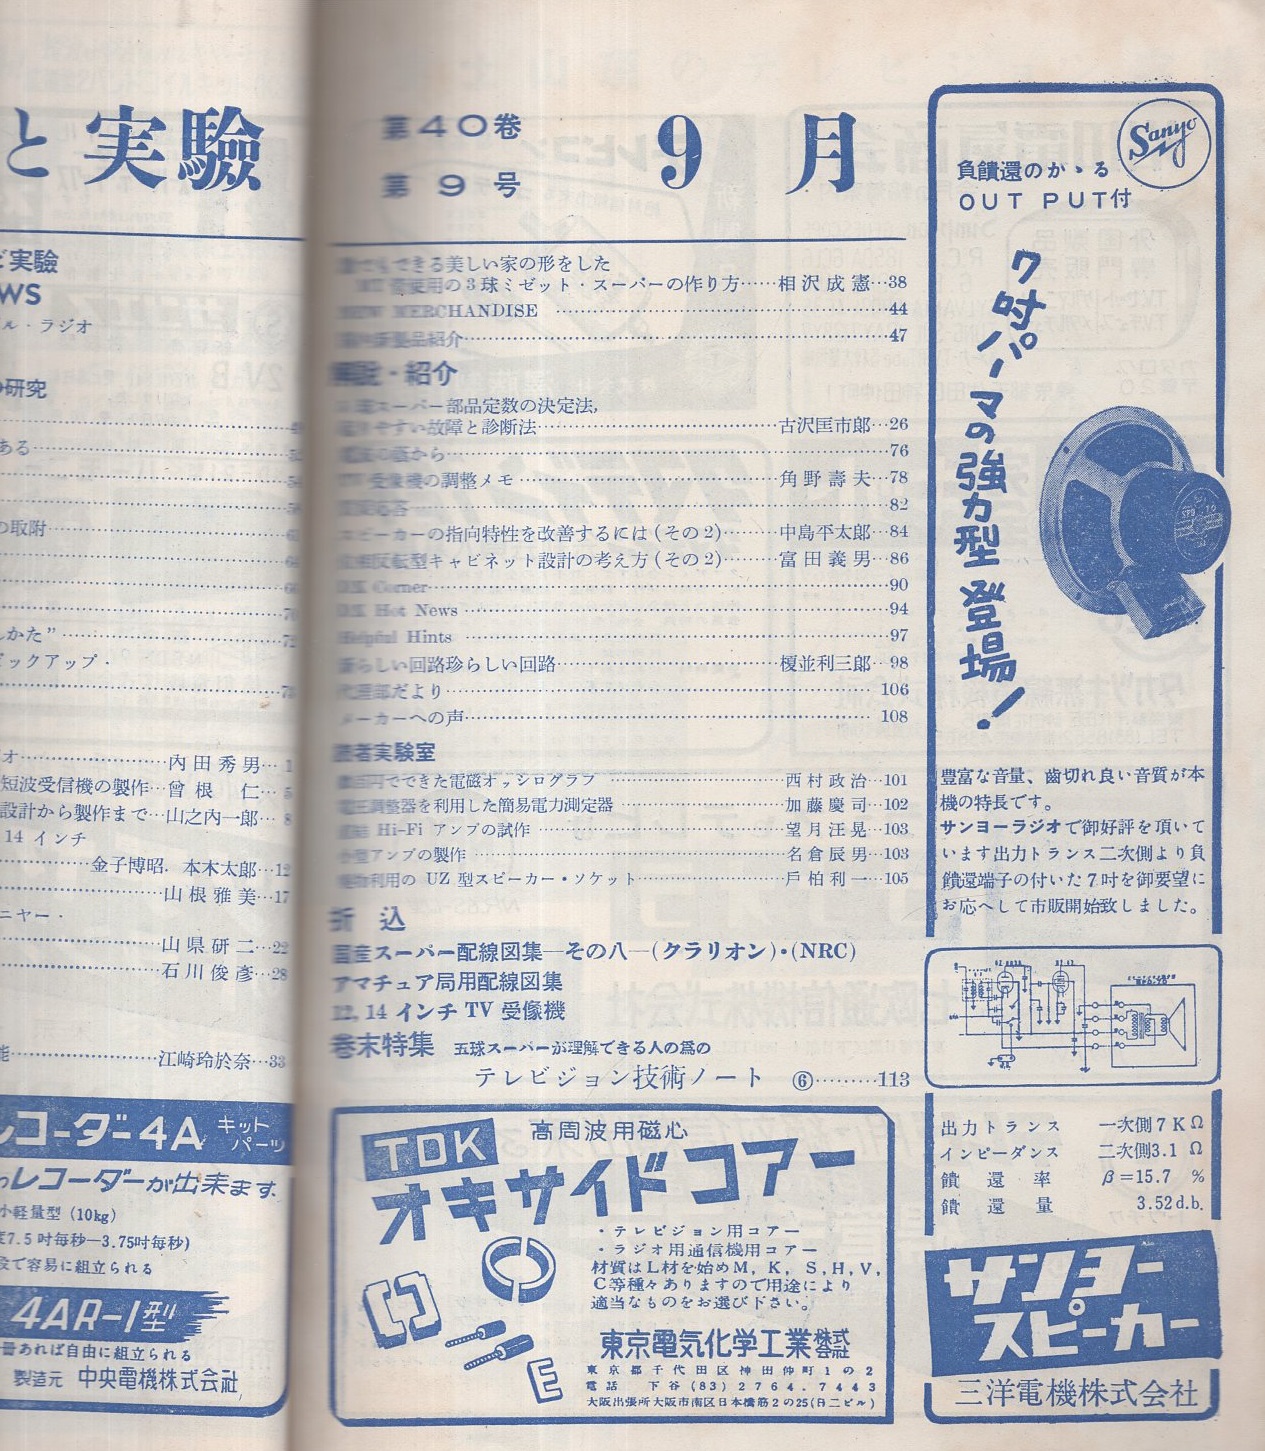 と実驗
ど実驗
WS
ル・ラジオ
の研究
ある
の取附
しかた”
ピックアップ・
オ 内田秀男 1
短波受信機の製作 曾根 仁 5
設計から製作まで 山之内一郎 8
14 インチ
金子博昭. 本木太郎 12
山根雅美 17
ニヤー・
山県研二 22
石川俊彦 28
能 江崎玲於奈 33
レコーダー4A キット
パーツ
のレコーダーが出来ます.
小軽量型 (10kg)
度7.5吋毎秒—3.75吋毎秒)
設で容易に組立られる
4AR-1型
冊あれば自由に組立られる
製造元 中央電機株式会社
第40巻
第9号
9月
誰でもできる美しい家の形をした
MT管使用の3球ミゼット・スーパーの作り方 相沢成憲 38
NEW MERCHANDISE 44
新製品紹介 47
解説・紹介
スーパー部品定数の決定法,
りやすい故障と診断法 古沢匡市郎 26
から 76
受像機の調整メモ 角野壽夫 78
82
スピーカーの指向特性を改善するには(その2) 中島平太郎 84
位相反転型キャビネット設計の考え方(その2) 富田義男 86
DX Corner 90
DX Hot News 94
Helpful Hints 97
新らしい回路珍らしい回路 榎並利三郎 98
代理部だより 106
メーカーへの声 108
読者実験室
円でできた電磁オッシログラフ 西村政治 101
電圧調整器を利用した簡易電力測定器 加藤慶司 102
Hi-Fi アンプの試作 望月汪晃 103
小型アンプの製作 名倉辰男 103
利用の UZ 型スピーカー・ソケット 戶柏利一 105
折込
国産スーパー配線図集—その八—(クラリオン)・(NRC)
アマチュア局用配線図集
12, 14 インチ TV 受像機
巻末特集 五球スーパーが理解できる人の爲の
テレビジョン技術ノート ⑥ 113
TDK
高周波用磁心
オキサイドコアー
・テレビジョン用コアー
・ラジオ用通信機用コアー
材質はL材を始めM, K, S, H, V,
C等種々ありますので用途により
適当なものをお選び下さい。
東京電気化学工業株式会社
東京都千代田区神田仲町1の2
電話 下谷(83)2764.7443
大阪出張所大阪市南区日本橋筋2の25(日二ビル)
Sanyo
負饋還のかゝる
OUT PUT付
7吋パーマの強力型登場!
豊富な音量、歯切れ良い音質が本
機の特長です。
サンヨーラジオで御好評を頂いて
います出力トランス二次側より負
饋還端子の付いた7吋を御要望に
お応へして市販開始致しました。
出力トランス 一次側7KΩ
インピーダンス 二次側3.1 Ω
饋還率 β=15.7 %
饋還量 3.52d.b.
サンヨー
スピーカー
三洋電機株式会社